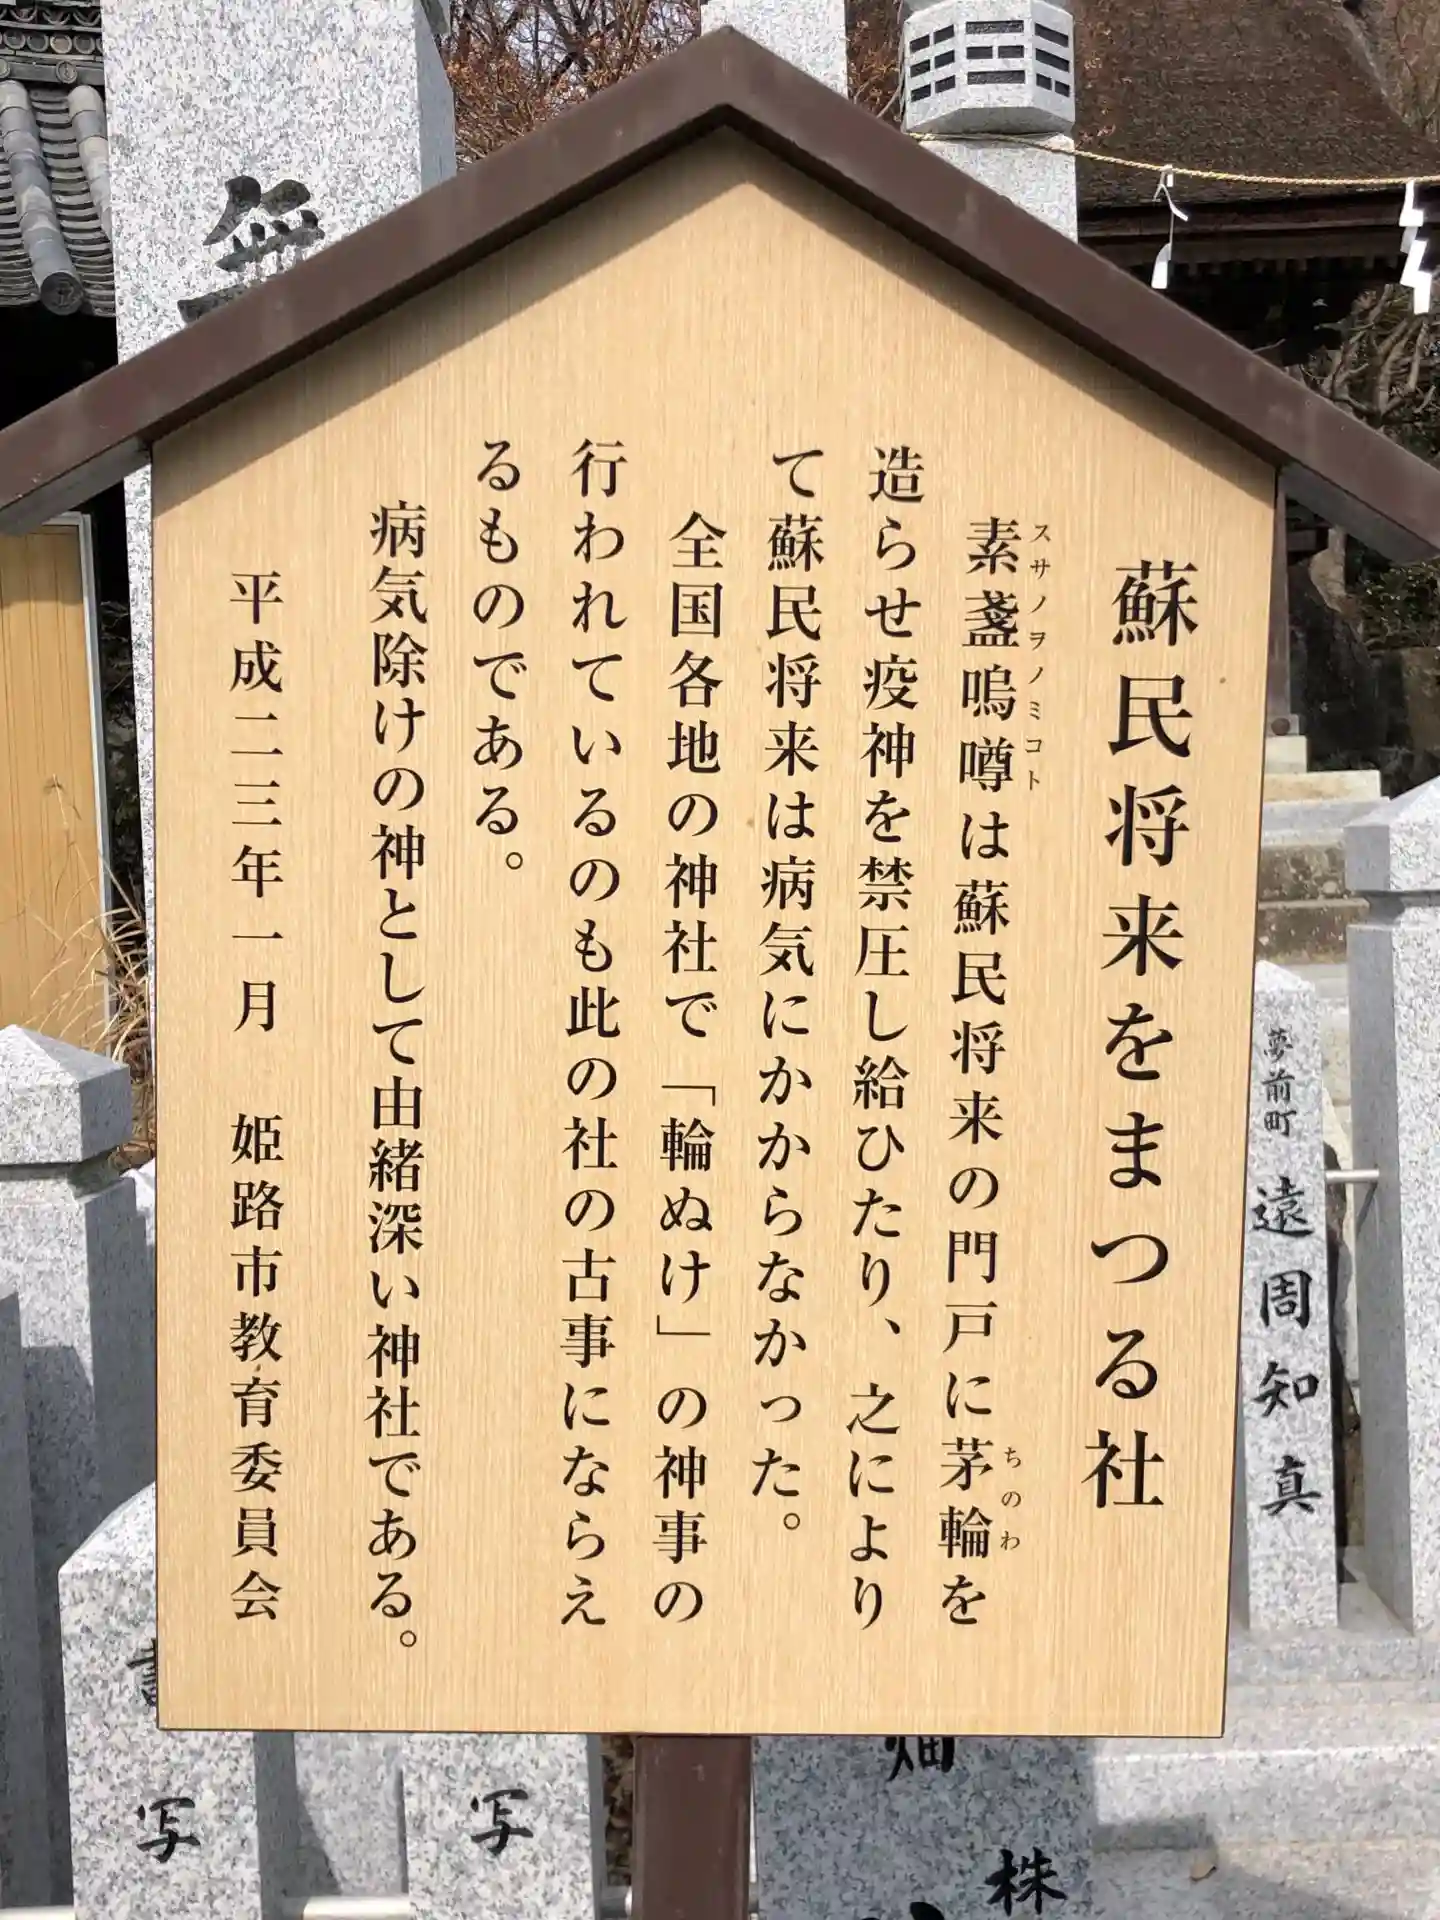 蘇民将来をまつる社
素盞嗚噂は蘇民将来の門戸に茅輪を
スサノヲノミコト
ちのわ
造らせ疫神を禁圧し給ひたり、之により
て蘇民将来は病気にかからなかった。
全国各地の神社で「輪ぬけ」の神事の
行われているのも此の社の古事にならえ
るものである。
病気除けの神として由緒深い神社である。
平成二三年一月　姫路市教育委員会
夢前町 遠周知真
無
写
写
畑
株